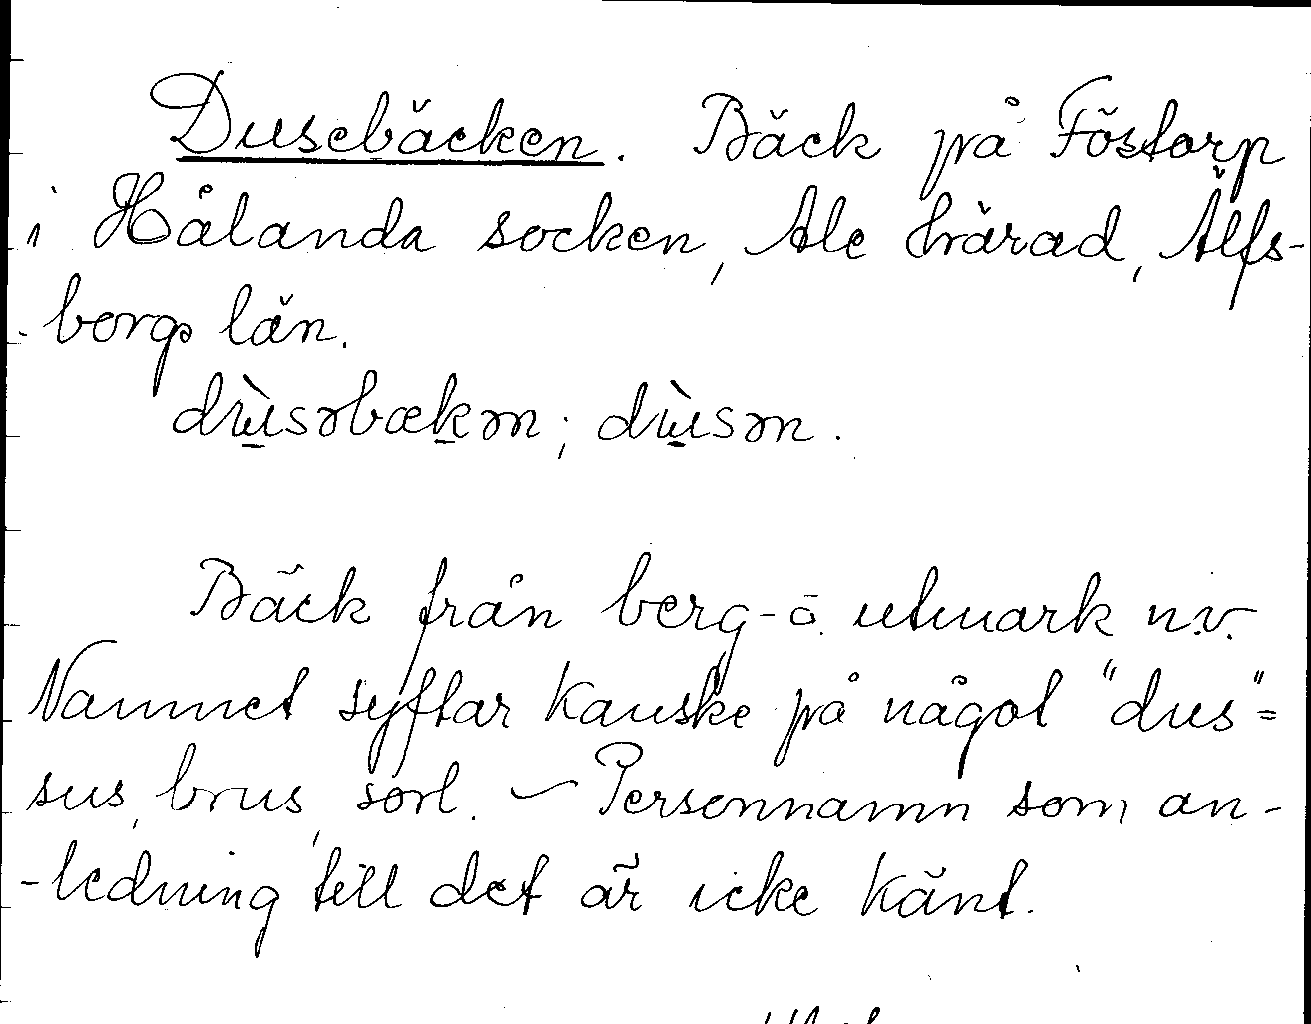 Dusebäcken. Bäck på Föstorp
i Hålanda socken, Ale härad, Älfs-
borgs län.
dùsəbækən; dùsən.
Bäck från berg- o. utmark n.v.
Namnet syftar kanske på något "dus" =
sus, brus, sorl. – Personnamn som an-
-ledning till det är icke känt.